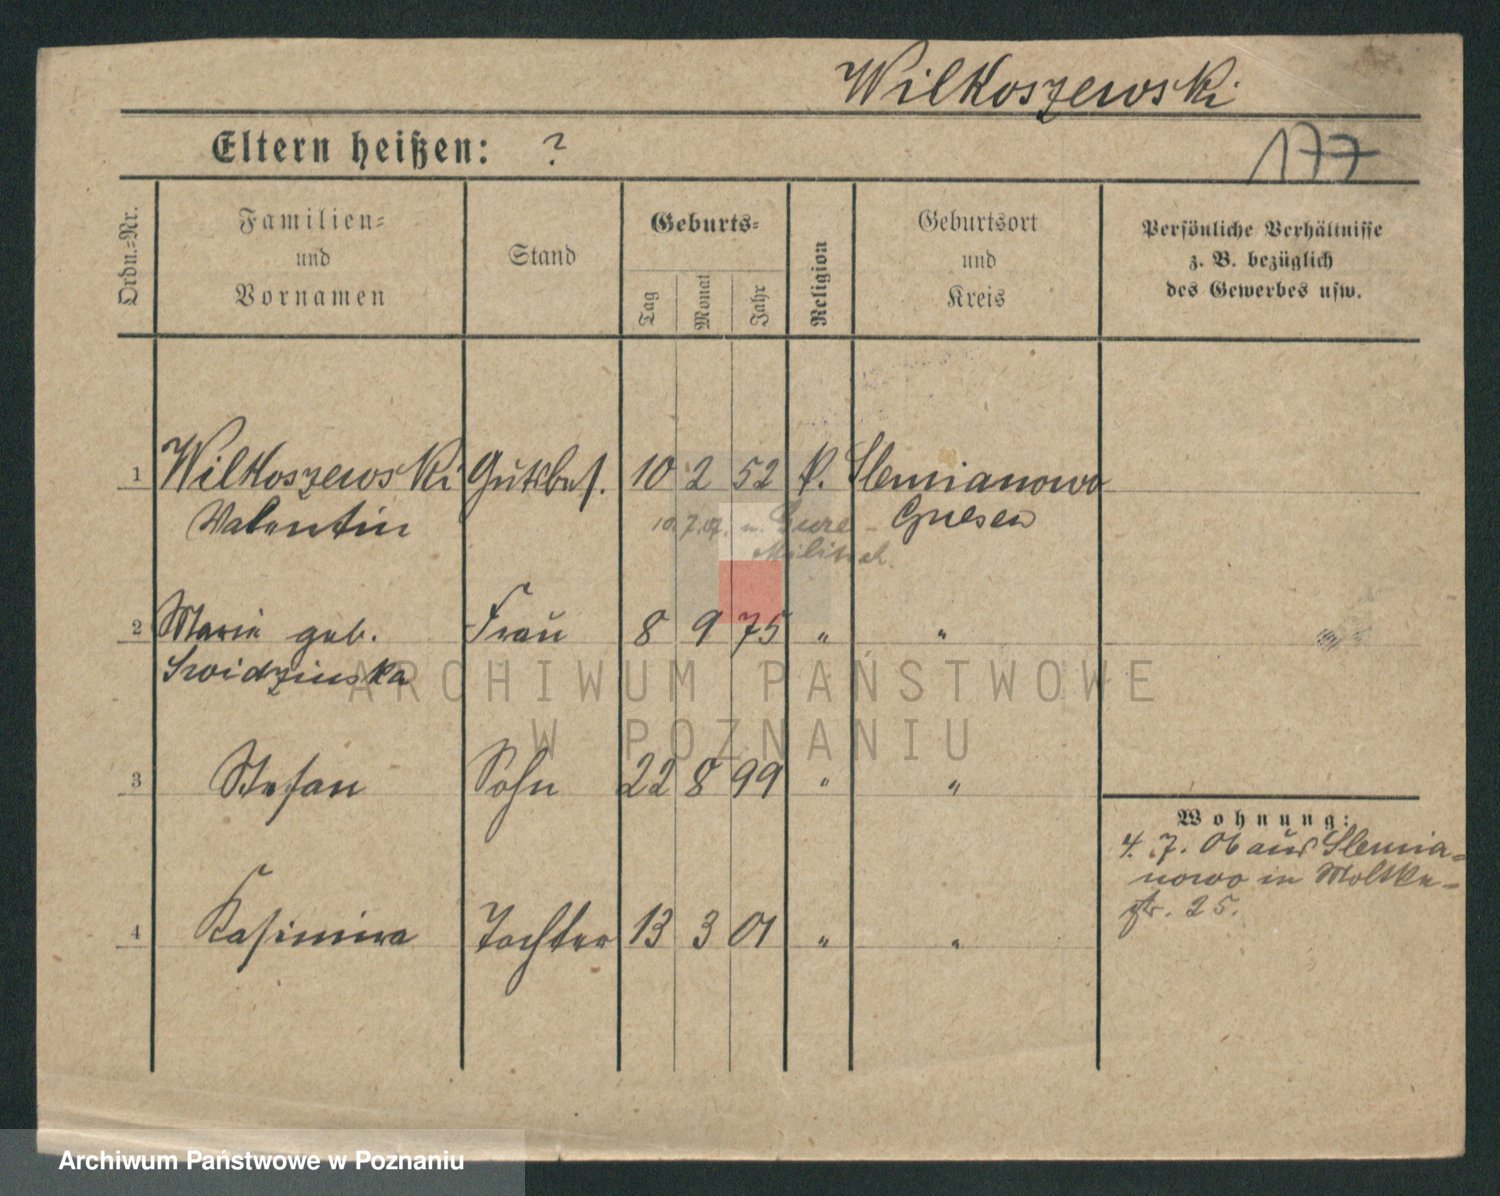 Wilkoszewski
Eltern heißen: ?
177
Ordn.-Nr.
Familien-
und
Vornamen
Stand
Geburts-
Tag
Monat
Jahr
Religion
Geburtsort
und
Kreis
Persönliche Verhältnisse
z. B. bezüglich
des Gewerbes usw.
1 Wilkoszewski Gutsbes. 10 2 52 k. Slemianowo
Valentin Gnesen
10.7.07. n.
2 Marie geb. Frau 8 9 75 " "
Swidzinska
3 Stefan Sohn 22 8 99 " "
4 Kasimira Tochter 13 3 01 " "
Wohnung:
4. 7. 06 aus Slemia-
nowo in Moltke-
str. 25.
ARCHIWUM PAŃSTWOWE
W POZNANIU
Archiwum Państwowe w Poznaniu